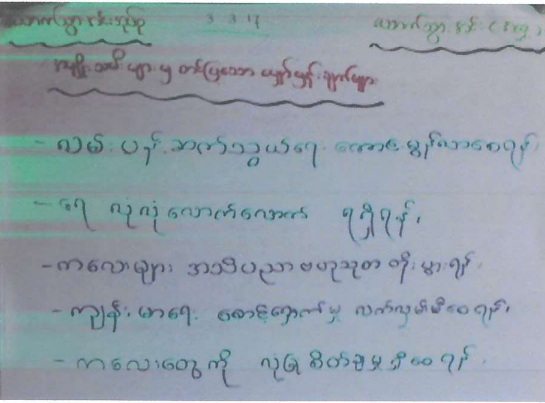 3.3.17
အမျိုးသမီးများမှ တင်ပြသော မျှော်မှန်းချက်များ
- လမ်းပန်းဆက်သွယ်ရေး ကောင်းမွန်လာစေရန်
- ရေ လုံလုံလောက်လောက် ရရှိရန်၊
- ကလေးများ အသိပညာ ဗဟုသုတ တိုးပွားရန်၊
- ကျန်းမာရေး စောင့်ရှောက်မှု လက်လှမ်းမီစေရန်၊
- ကလေးတွေကို လုံခြုံစိတ်ချမှုရှိစေရန်၊